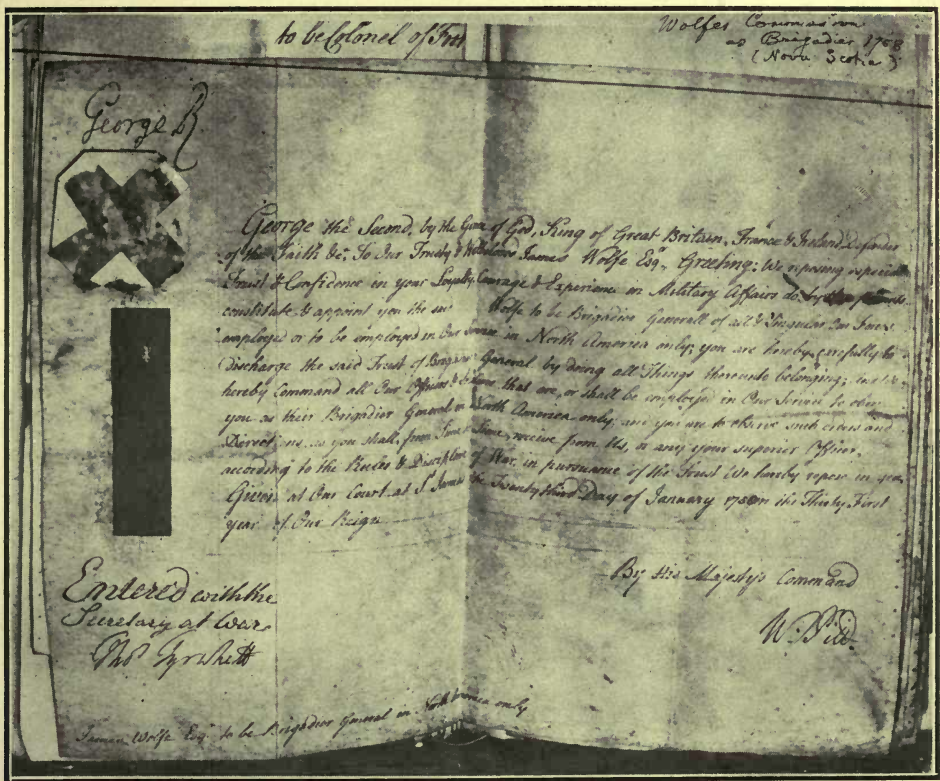 to be Colonel of Foot
Wolfes Commission
as Brigadier 1758
(Nova Scotia)
George R
George the Second, by the Grace of God, King of Great Britain, France & Ireland, Defender
of the Faith &c. To Our Trusty & Wellbeloved James Wolfe Esqr. Greeting: We reposing especial
Trust & Confidence in your Loyalty, Courage & Experience in Military Affairs do, by these presents,
constitute & appoint you the said Wolfe to be Brigadier Generall of all & Singular Our Forces
employed or to be employed in Our Service in North America only; you are hereby carefully to
Discharge the said Trust of Brigadier General by doing all Things thereunto belonging; and We
hereby Command all Our Officers & Soldiers that are, or shall be employed in Our Service to obey
you as their Brigadier General in North America only, and you are to observe such orders and
Directions, as you shall, from time to time, receive from Us, or any your superior Officer,
according to the Rules & Discipline of War, in pursuance of the Trust We hereby repose in you
Given at Our Court at St James's the Twenty third Day of January 1758 in the Thirty First
year of Our Reign
Entered with the
Secretary at War
Tho Tyrwhitt
By His Majesty's Command
W. Pitt
James Wolfe Esqr. to be Brigadier General in North America only